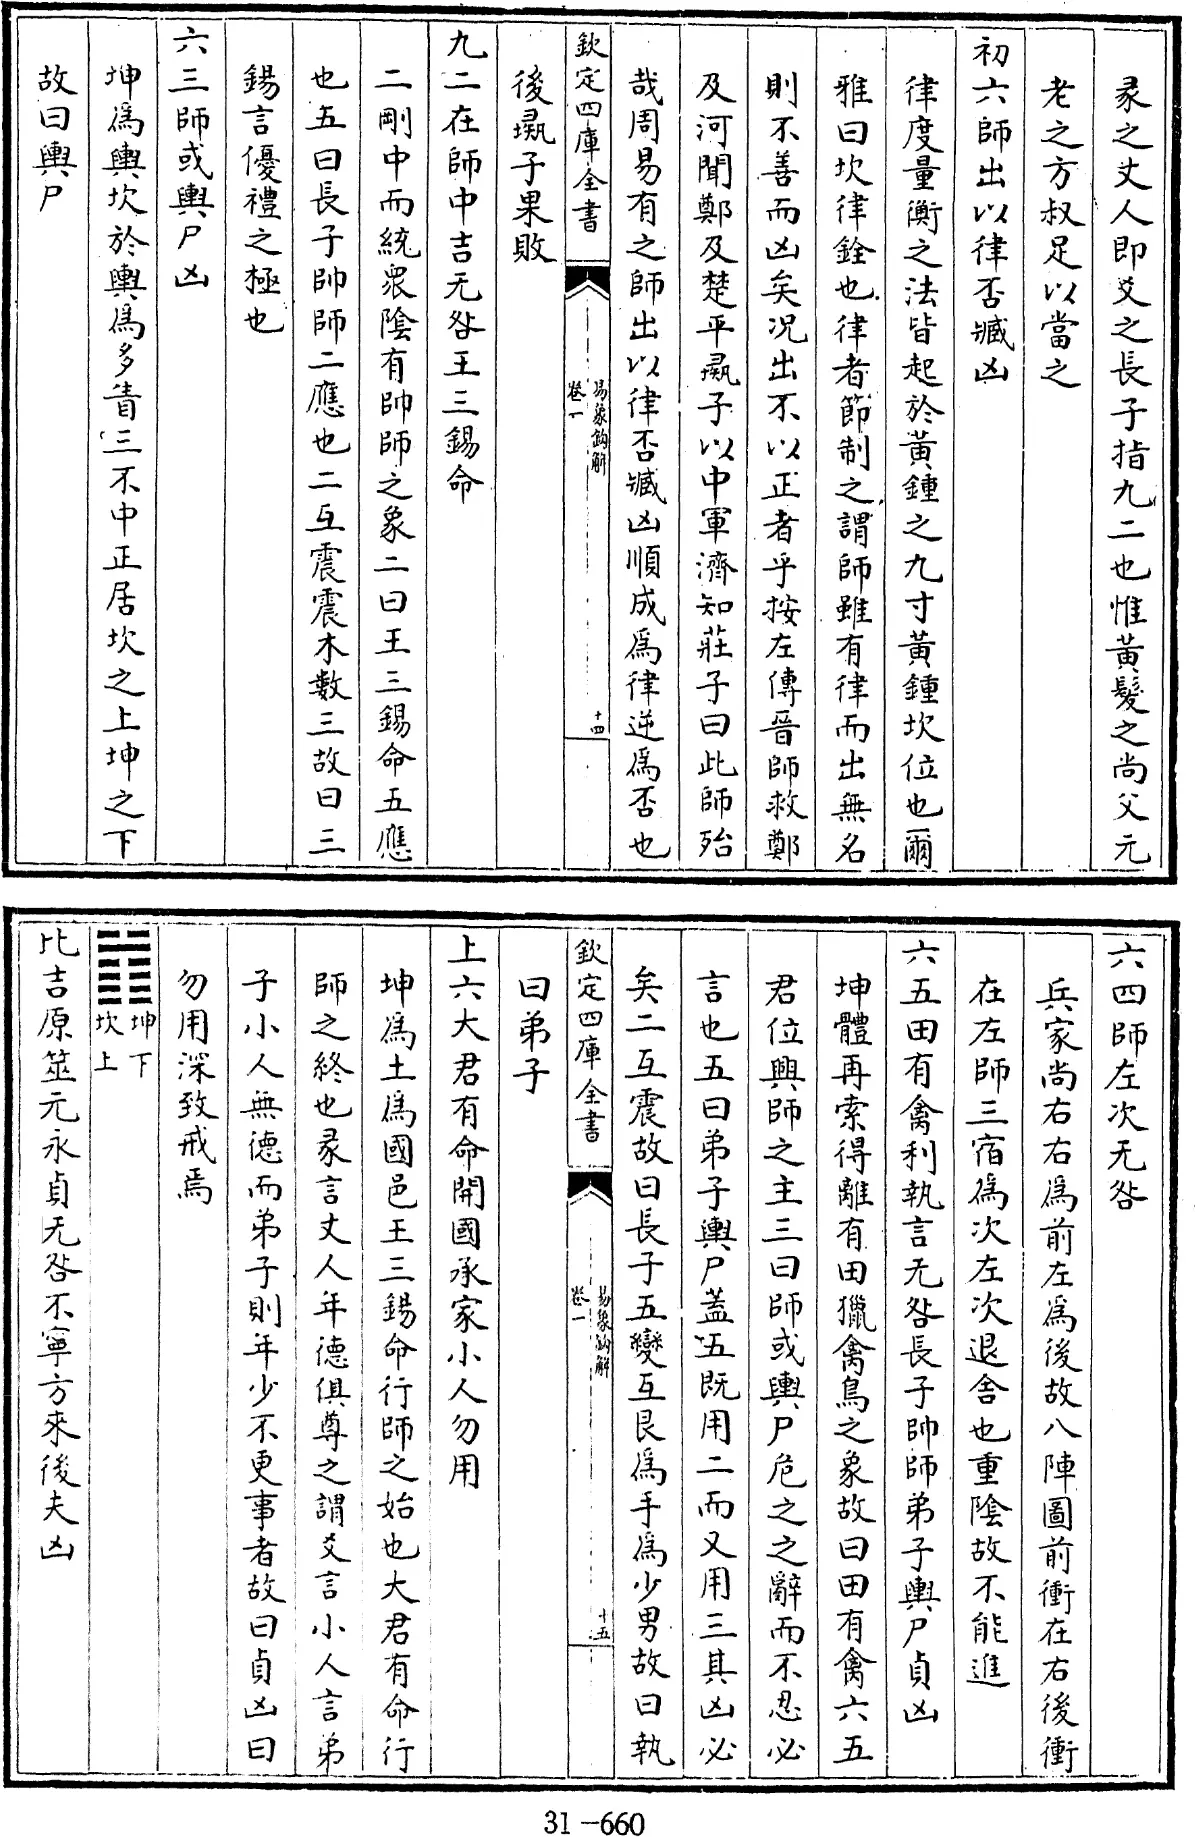 彖之丈人即爻之長子指九二也惟黃髮之尚父元
老之方叔足以當之
初六師出以律否臧凶
律度量衡之法皆起於黃鍾之九寸黃鍾坎位也爾
雅曰坎律銓也律者節制之謂師雖有律而出無名
則不善而凶矣况出不以正者乎按左傳晉師救鄭
及河聞鄭及楚平彘子以中軍濟知莊子曰此師殆
哉周易有之師出以律否臧凶順成為律逆為否也
欽定四庫全書
易象鈎解
卷一
十四
後彘子果敗
九二在師中吉无咎王三錫命
二剛中而統衆陰有帥師之象二曰王三錫命五應
也五曰長子帥師二應也二互震震木數三故曰三
錫言優禮之極也
六三師或輿尸凶
坤為輿坎於輿為多眚三不中正居坎之上坤之下
故曰輿尸
六四師左次无咎
兵家尚右右為前左為後故八陣圖前衝在右後衝
在左師三宿為次左次退舍也重陰故不能進
六五田有禽利執言无咎長子帥師弟子輿尸貞凶
坤體再索得離有田獵禽鳥之象故曰田有禽六五
君位興師之主三曰師或輿尸危之之辭而不忍必
言也五曰弟子輿尸蓋五既用二而又用三其凶必
矣二互震故曰長子五變互艮為手為少男故曰執
欽定四庫全書
易象鈎解
卷一
十五
曰弟子
上六大君有命開國承家小人勿用
坤為土為國邑王三錫命行師之始也大君有命行
師之終也彖言丈人年德俱尊之謂爻言小人言弟
子小人無德而弟子則年少不更事者故曰貞凶曰
勿用深致戒焉
坤下
坎上
比吉原筮元永貞无咎不寧方來後夫凶
31-660